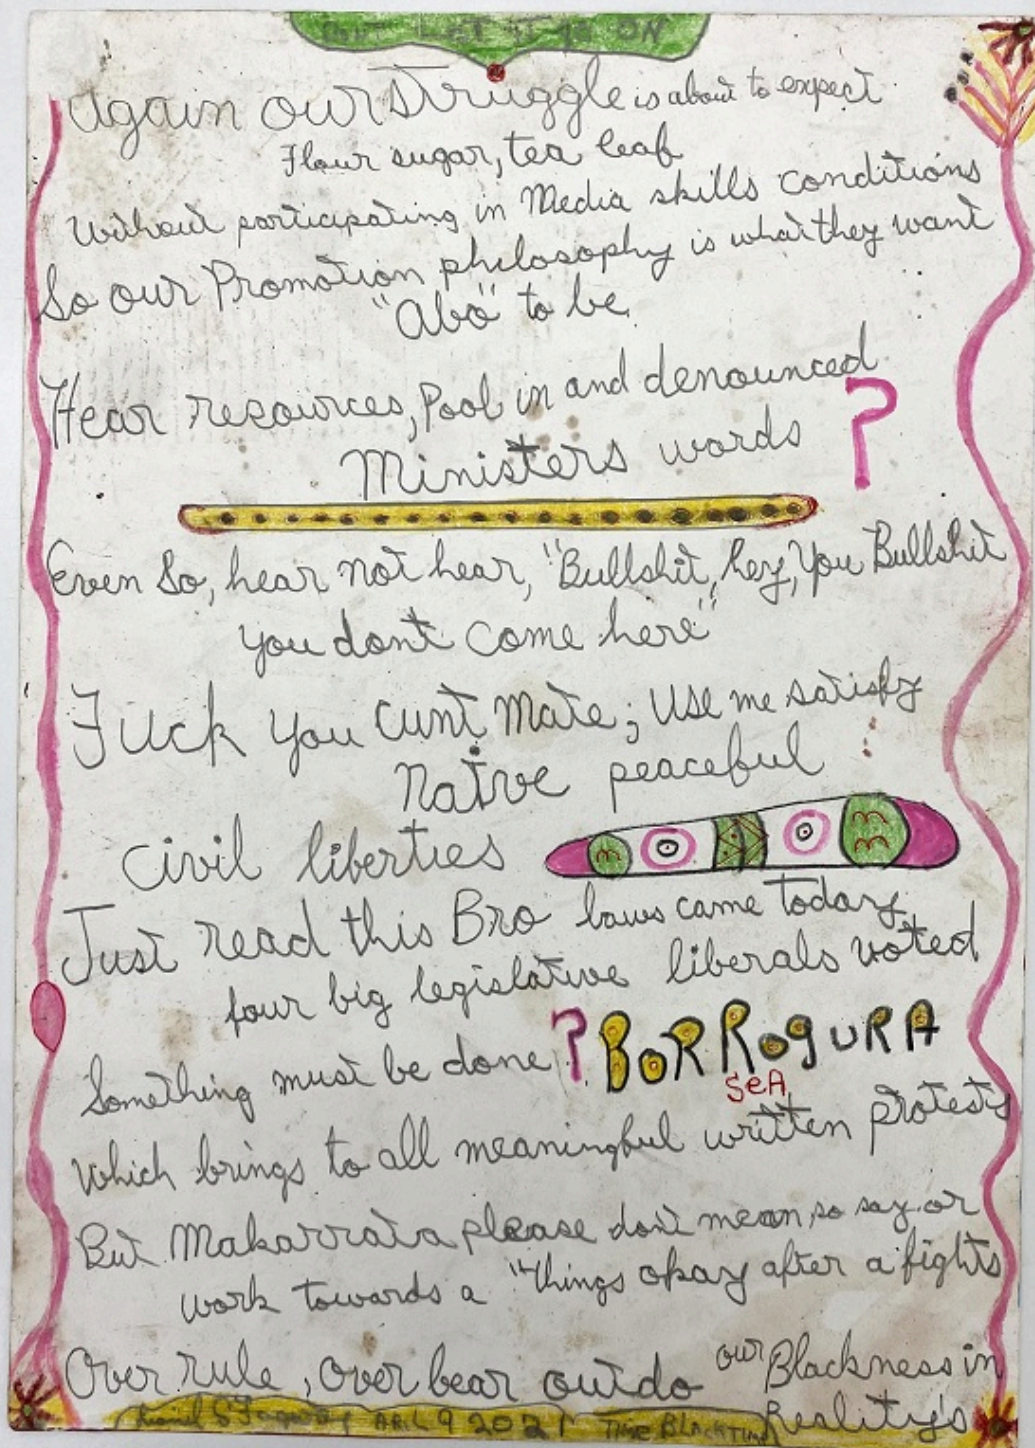 CAN'T LET IT GO ON
Again our struggle is about to expect
Flour sugar, tea leaf
Without participating in Media skills conditions
So our Promotion philosophy is what they want
"Abo" to be
Hear resources, Pool in and denounced
Ministers words ?
Even So, hear not hear, "Bullshit, hey, You Bullshit
you dont come here"
Fuck You Cunt Mate; Use me satisfy
Native peaceful
Civil liberties
Just read this Bro laws came today
four big legislative liberals voted
Something must be done ? BORROGURA
SeA
Which brings to all meaningful written protests
But Makarrata please don't mean, so say or
work towards a "things okay after a fights
Over rule, over bear outdo our Blackness in
Reality's
Lionel G Fogarty APRL 9 2021 Time BLACKTime